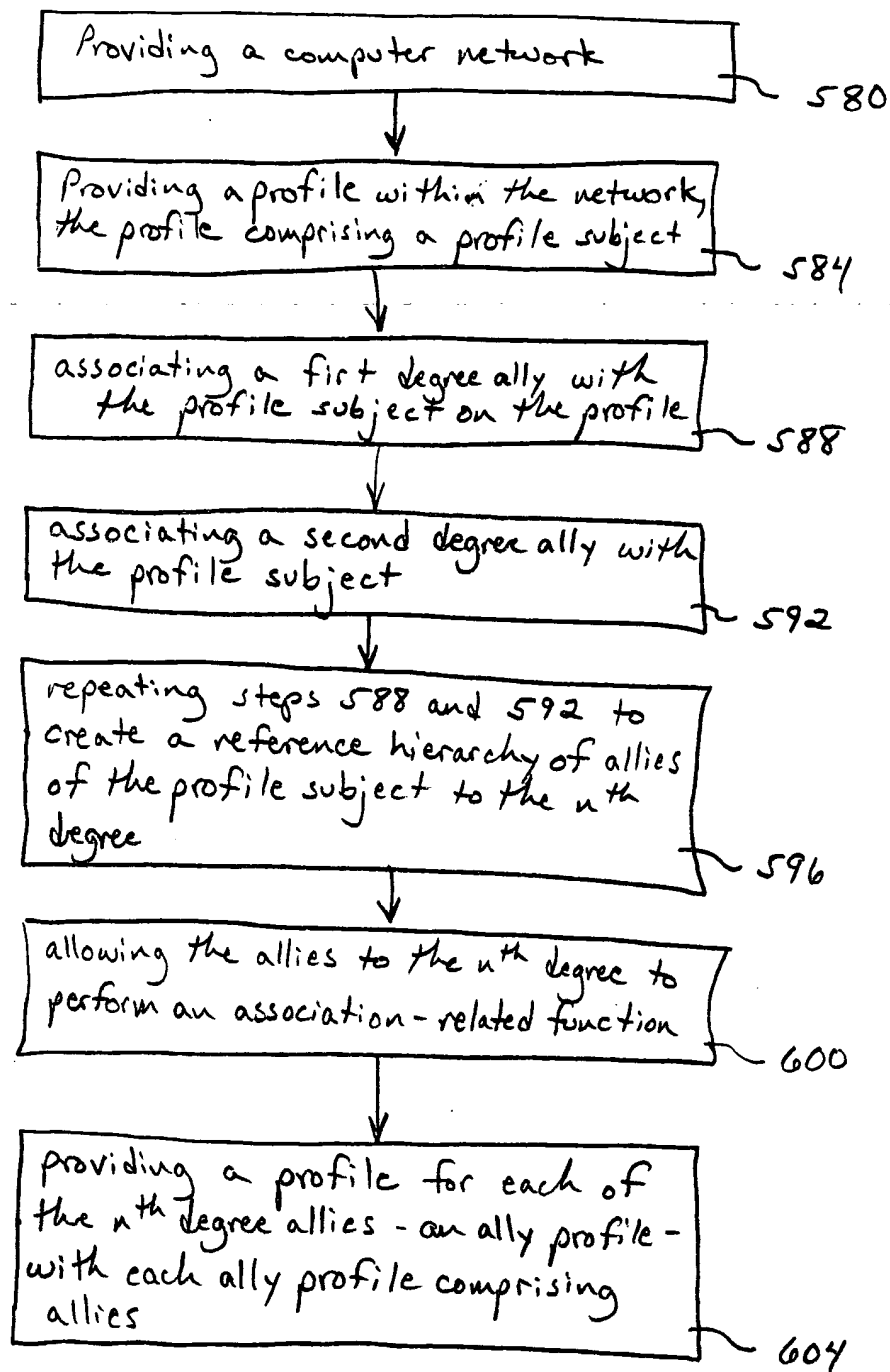 Providing a computer network
580
Providing a profile within the network,
the profile comprising a profile subject
584
associating a first degree ally with
the profile subject on the profile
588
associating a second degree ally with
the profile subject
592
repeating steps 588 and 592 to
create a reference hierarchy of allies
of the profile subject to the nth
degree
596
allowing the allies to the nth degree to
perform an association-related function
600
providing a profile for each of
the nth degree allies - an ally profile -
with each ally profile comprising
allies
604